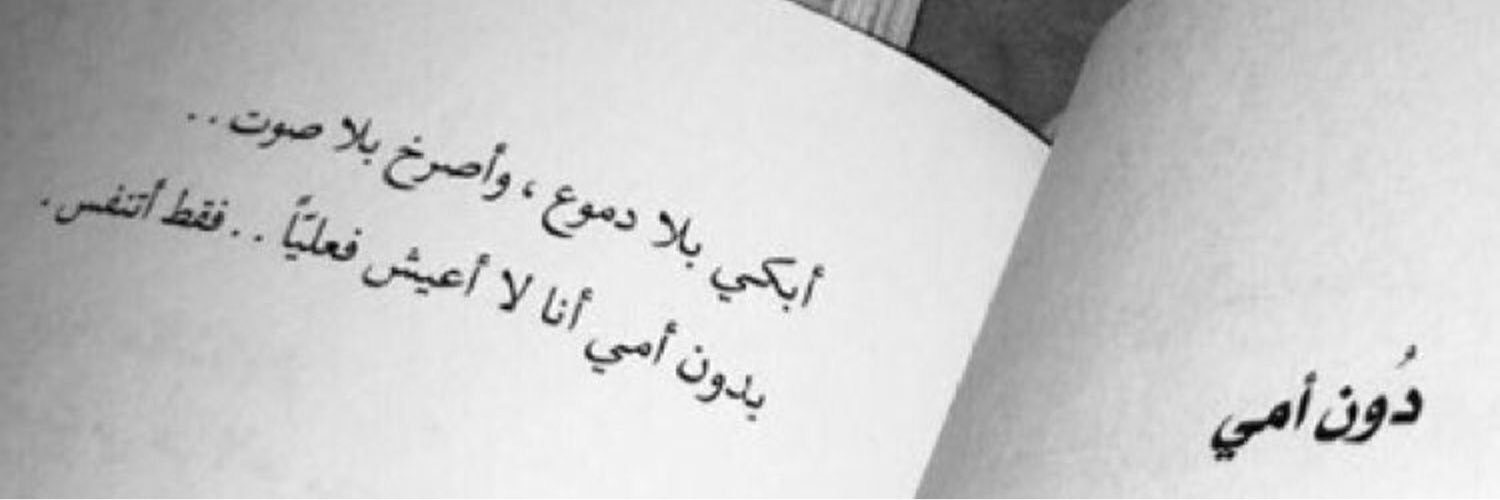 دُون أمي
أبكي بلا دموع ، وأصرخ بلا صوت ..
بدون أمي أنا لا أعيش فعليّاً .. فقط أتنفس .